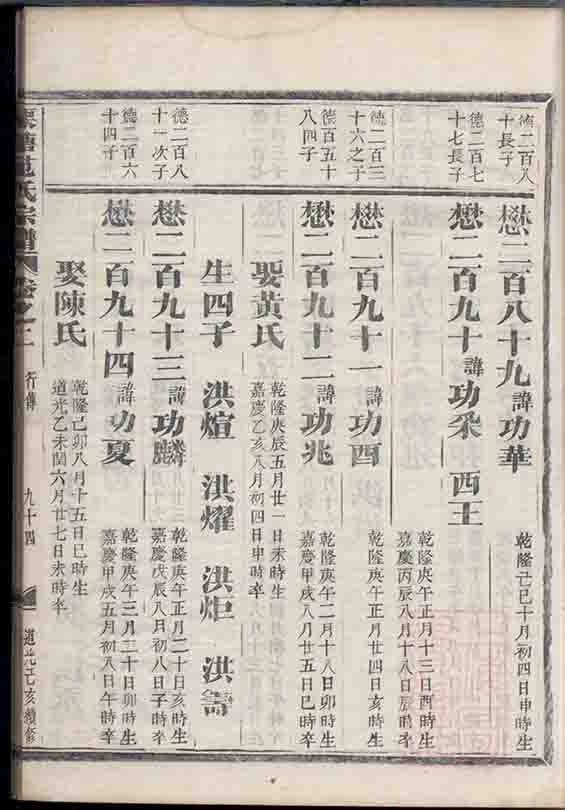 德二百八
十長子
懋二百八十九 諱功華
乾隆己巳十月初四日申時生
德二百七
十七長子
懋二百九十 諱功采 西王
乾隆庚午正月十三日酉時生
嘉慶丙辰八月十八日辰時卒
德二百三
十六之子
懋二百九十一 諱功酉
乾隆庚午正月廿四日亥時生
德百五十
八四子
懋二百九十二 諱功兆
乾隆庚午二月十八日卯時生
嘉慶甲戌八月廿五日巳時卒
娶黃氏
乾隆庚辰五月廿一日未時生
嘉慶乙亥八月初四日申時卒
生四子 洪煊 洪燿 洪炬 洪壽
德二百八
十一次子
懋二百九十三 諱功
乾隆庚午正月二十日亥時生
嘉慶戊辰八月初八日子時卒
德二百六
十四子
懋二百九十四 諱功夏
乾隆庚午三月二十日卯時生
嘉慶甲戌五月初八日午時卒
娶陳氏
乾隆己卯八月十五日巳時生
道光乙未閏六月廿七日未時卒
范氏宗譜 卷之二 行傳 九十四 道光己亥續修